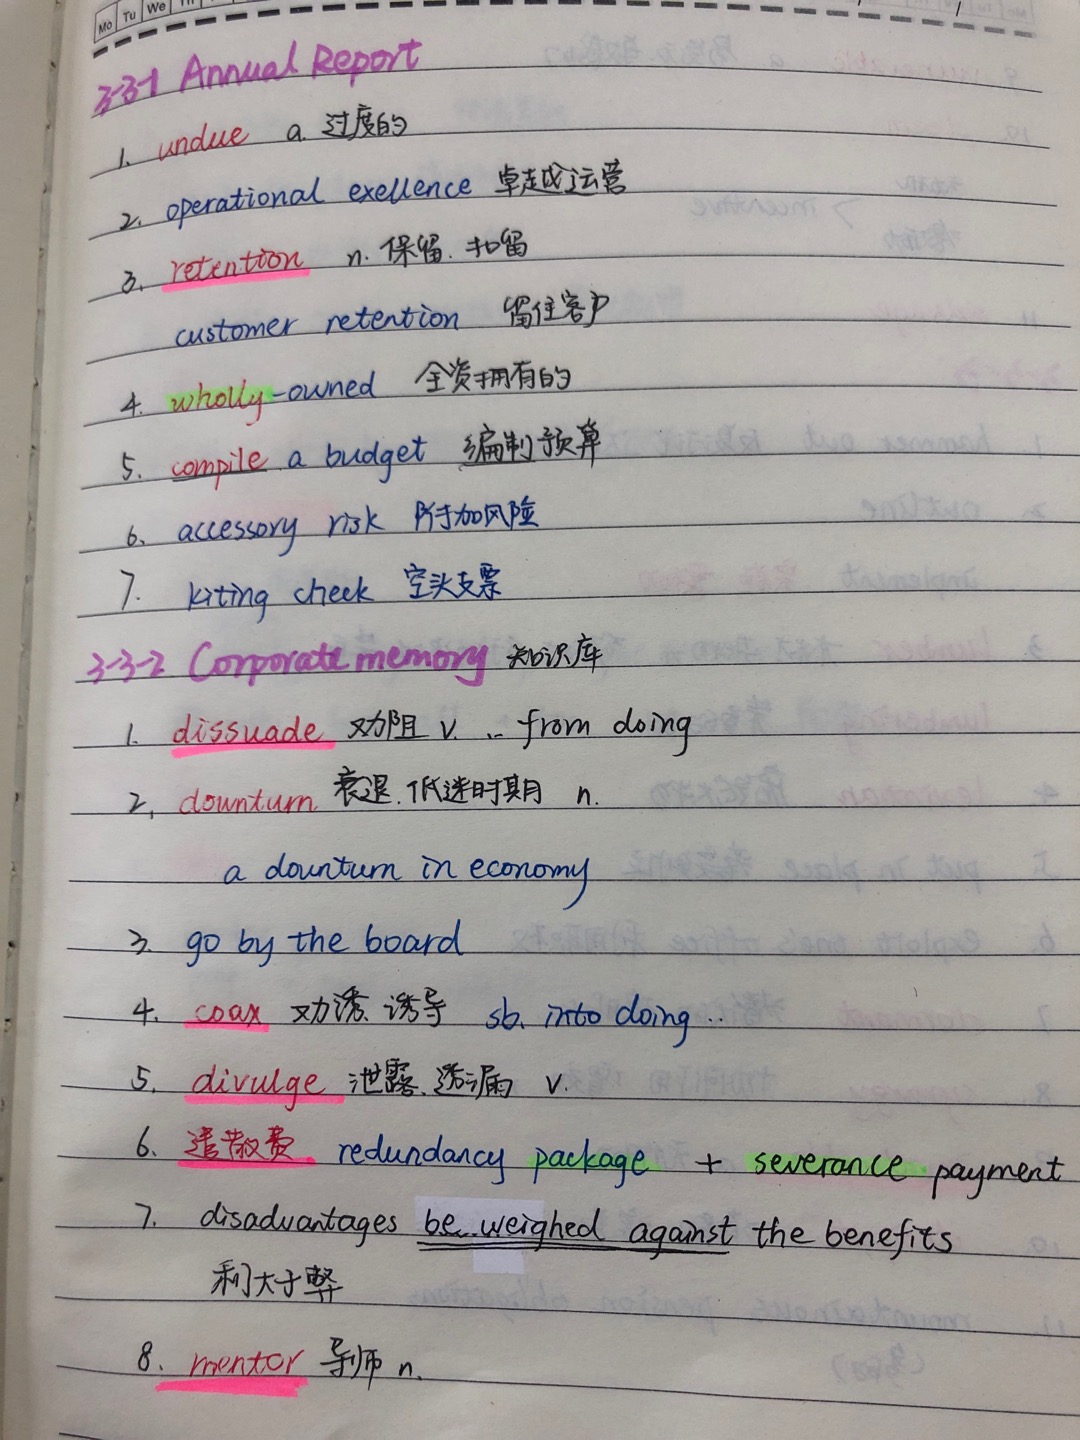 Mo Tu We
3-3-1 Annual Report
1. undue a. 过度的
2. operational exellence 卓越运营
3. retention n. 保留. 扣留
customer retention 留住客户
4. wholly-owned 全资拥有的
5. compile a budget 编制预算
6. accessory risk 附加风险
7. kiting check 空头支票
3-3-2 Corporate memory 知识库
1. dissuade 劝阻 v. .. from doing
2. downturn 衰退. 低迷时期 n.
a downturn in economy
3. go by the board
4. coax 劝诱. 诱导 sb. into doing..
5. divulge 泄露. 透漏 v.
6. 遣散费. redundancy package + severance payment
7. disadvantages be weighed against the benefits
利大于弊
8. mentor 导师 n.